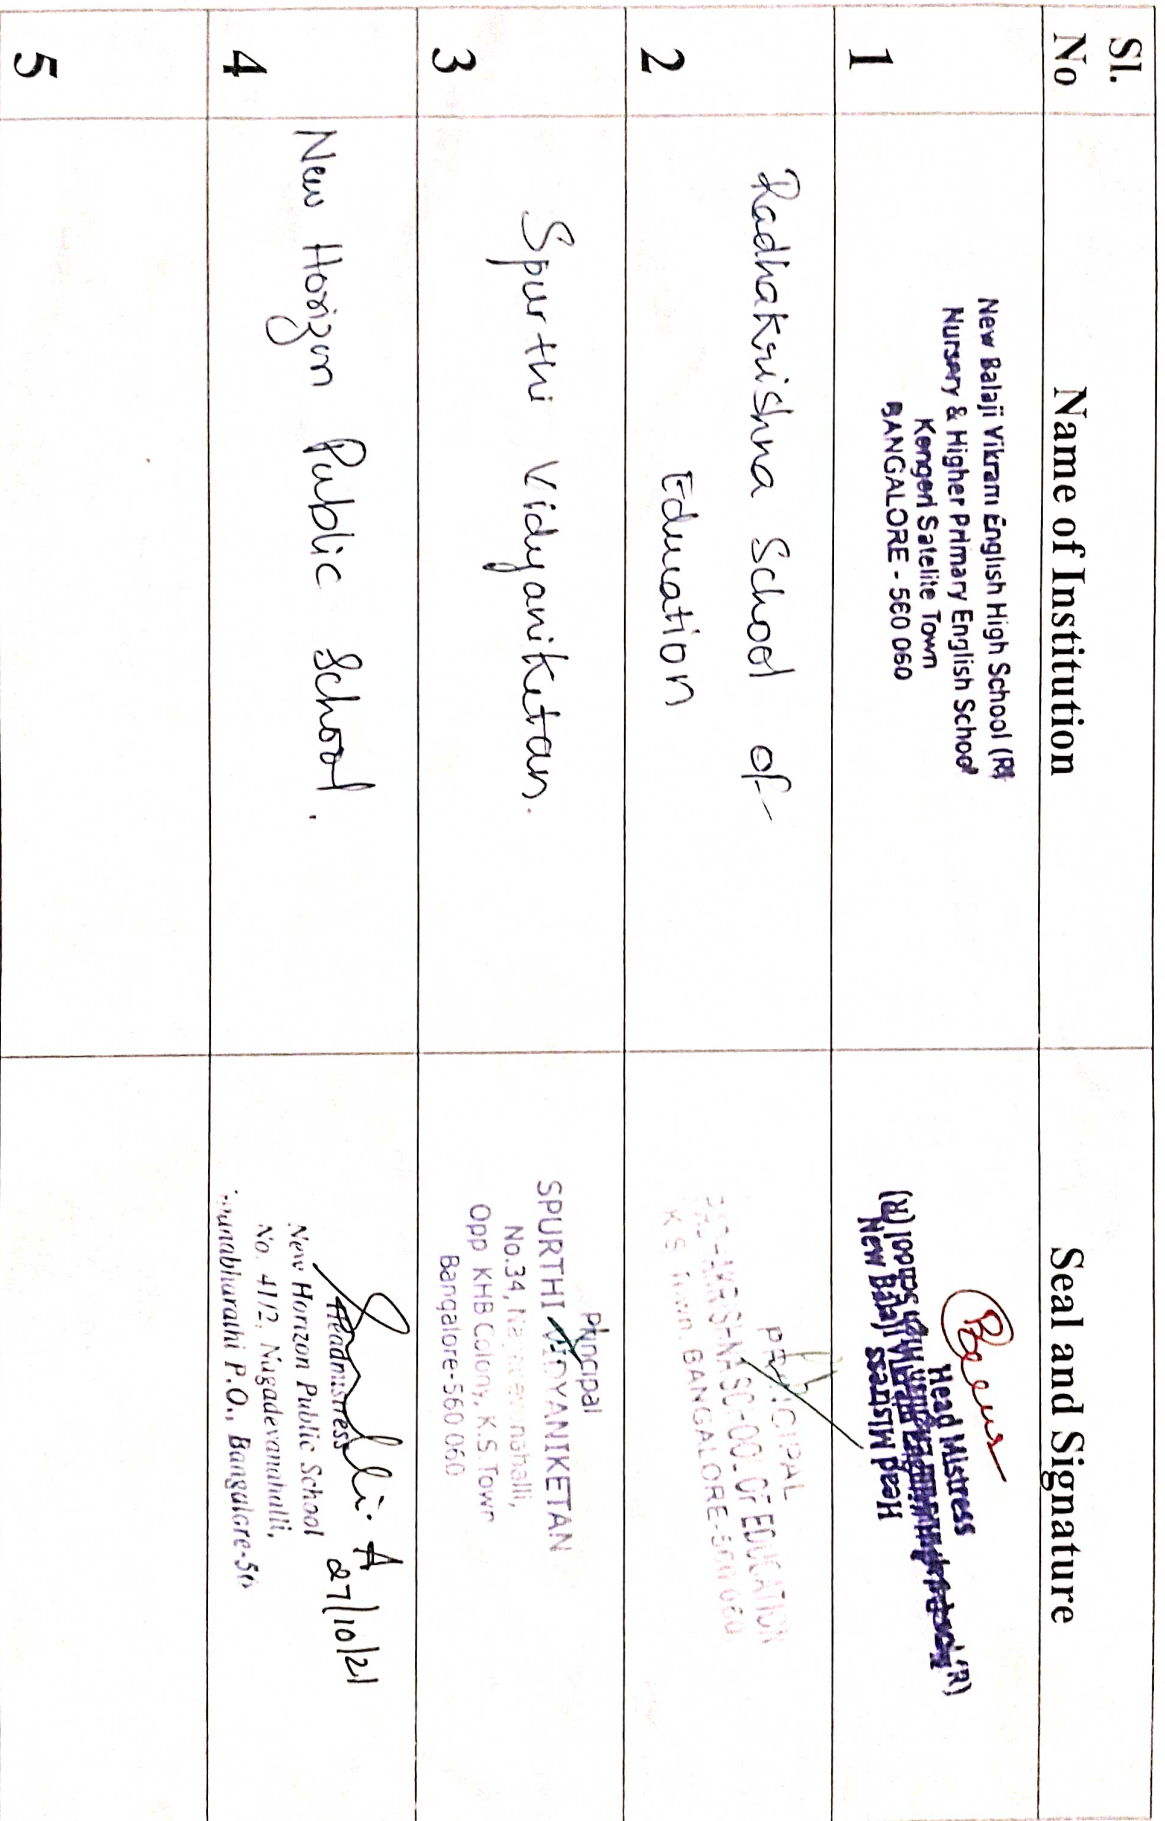 Sl. No
Name of Institution
Seal and Signature
1
New Balaji Vikram English High School (R)
Nursery & Higher Primary English School
Kengeri Satelite Town
BANGALORE - 560 060
Head Mistress
(R)
Head Mistress
New Balaji
2
Radhakrishna School of
Education
PRINCIPAL
RADHAKRISHNA SCHOOL OF EDUCATION
K.S. Town, BANGALORE-560 060
3
Spurthi Vidyaniketan.
Principal
SPURTHI VIDYANIKETAN
No.34,
Opp KHB Colony, K.S. Town
Bangalore-560 060
4
New Horizon Public School.
A
27/10/21
Headmistress
New Horizon Public School
No. 41/2, Nagadevanahalli,
P.O., Bangalore-56
5